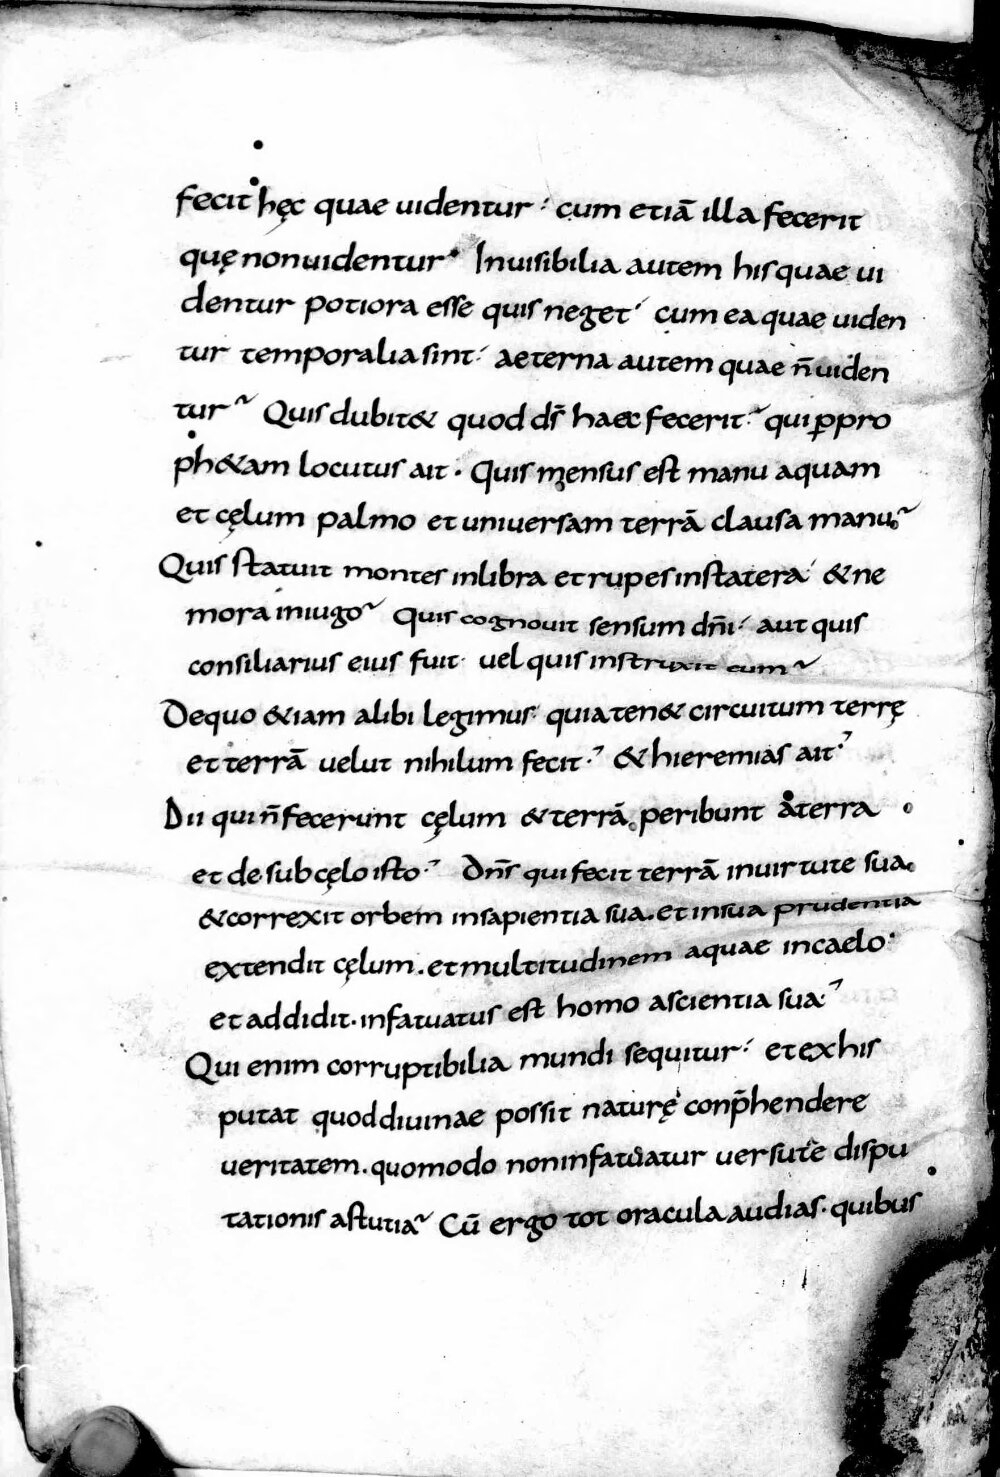 fecit hęc quae uidentur ⸵ cum etiā illa fecerit
quę nonuidentur · Inuisibilia autem his quae ui
dentur potiora esse quis neget ⸵ cum ea quae uiden
tur temporalia sint ⸵ aeterna autem quae n̄ uiden
tur ? Quis dubit& quod d̄s haec fecerit ? qui ꝑ pro
ph&am locutus ait · Quis mensus est manu aquam
et cęlum palmo et uniuersam terrā clausa manu ?
Quis statuit montes inlibra et rupes instatera ⸵ & ne
mora iniugo ? Quis cognouit sensum dn̄i ⸵ aut quis
consiliarius eius fuit · uel quis instruxit eum ?
Dequo &iam alibi legimus · quia ten& circuitum terrę
et terrā uelut nihilum fecit · ? & hieremias ait · ?
Dii qui n̄ fecerunt cęlum & terrā peribunt a terra
et de sub cęlo isto · ? Dn̄s qui fecit terrā inuirtute sua ·
& correxit orbem insapientia sua · et insua prudentia
extendit cęlum · et multitudinem aquae incaelo ·
et addidit · infatuatus est homo ascientia sua · ?
Qui enim corruptibilia mundi sequitur ⸵ et ex his
putat quod diuinae possit naturę conp̄hendere
ueritatem · quomodo noninfatuatur uersutię dispu
tationis astutia ? Cū ergo tot oracula audias · quibus